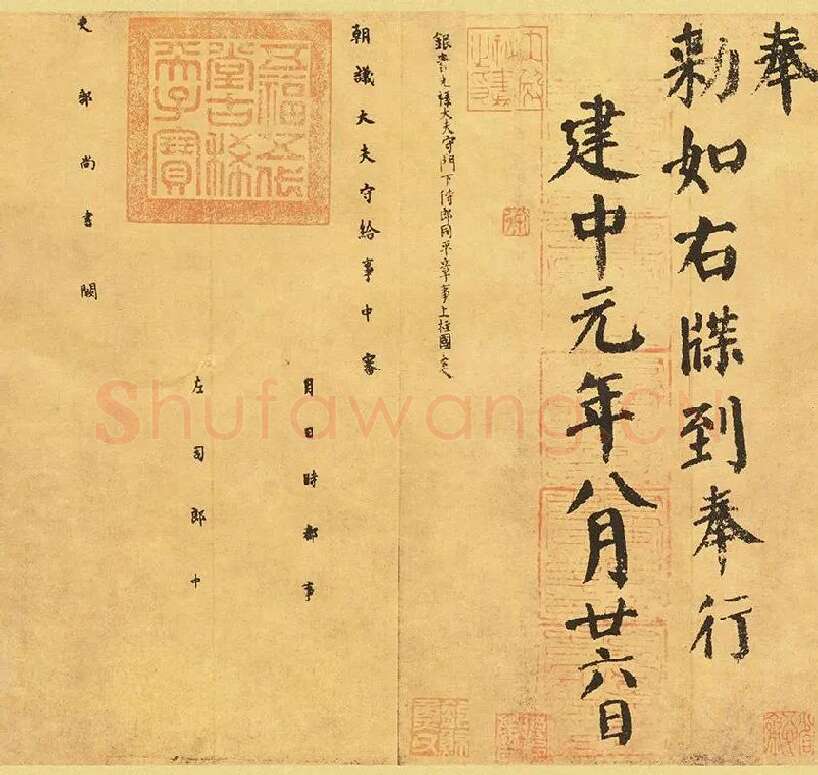 奉
勑如右牒到奉行
建中元年八月廿六日
銀青光祿大夫守門下侍郎同平章事上柱國炎
朝議大夫守給事中審
月日時都事
五福五代堂古稀天子寶
左司郎中
吏部尚書闕
Shufawang.CN